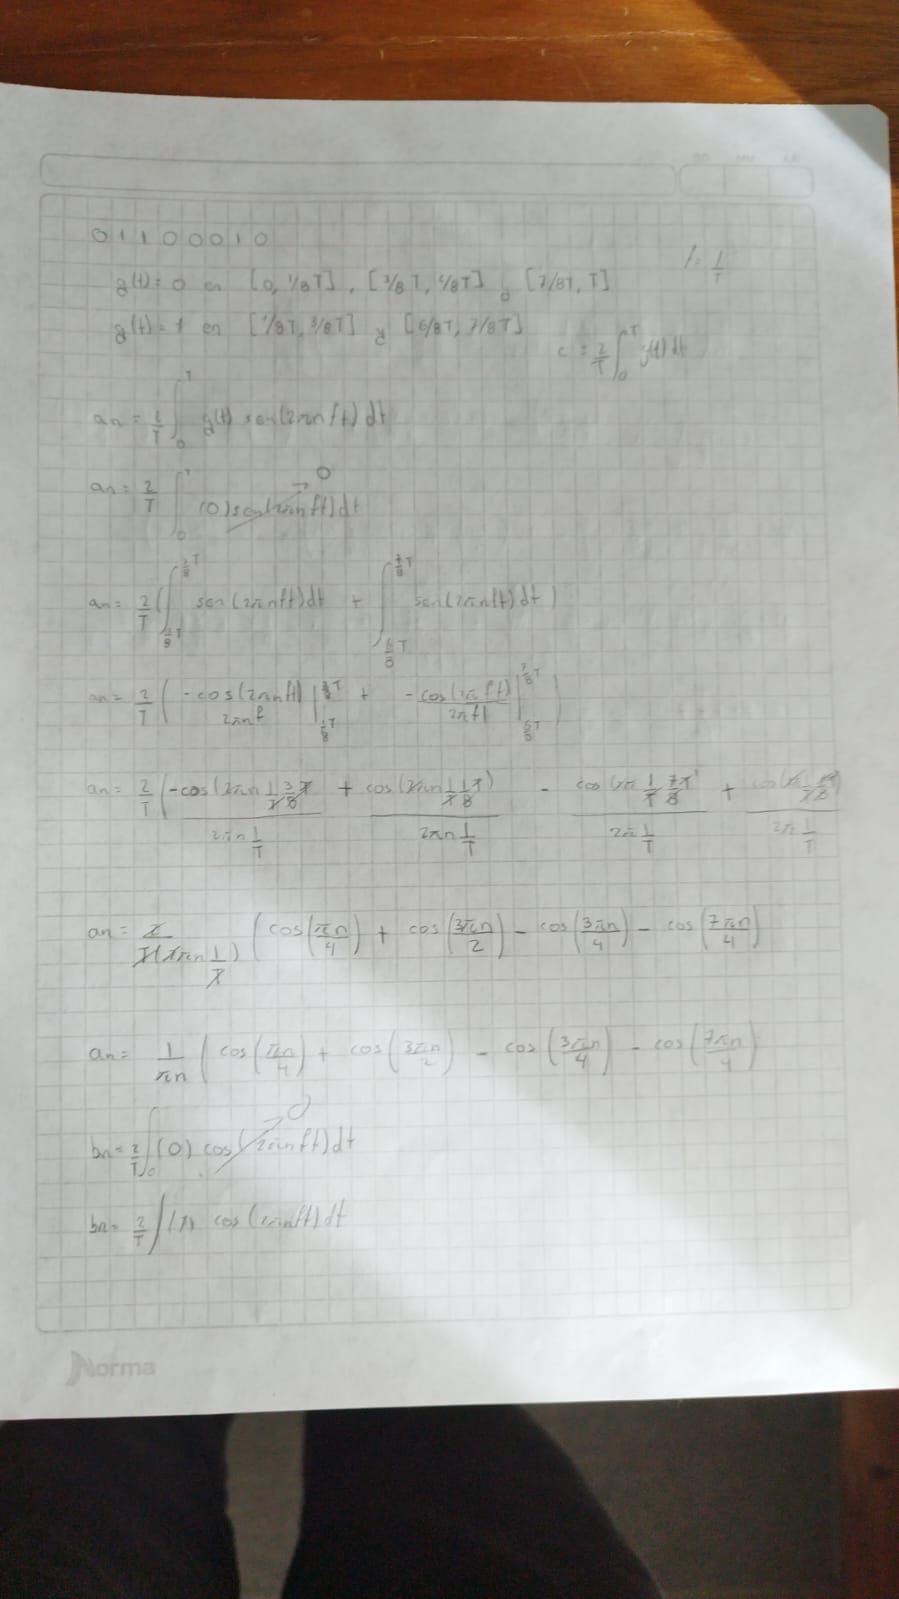 01100010
f = 1/T
g(t)=0 en [0, 1/8T], [3/8T, 6/8T] y [7/8T, T]
g(t)=1 en [1/8T, 3/8T] y [6/8T, 7/8T]
c = 2/T ∫₀ᵀ g(t) dt
an = 2/T ∫₀ᵀ g(t) sen(2πnft) dt
an = 2/T ∫₀ᵀ (0) sen(2πnft) dt → 0
an = 2/T ( ∫_{1/8 T}^{3/8 T} sen(2πnft) dt + ∫_{6/8 T}^{7/8 T} sen(2πnft) dt )
an = 2/T ( -cos(2πnft)/2πnf |_{1/8 T}^{3/8 T} + -cos(2πft)/2πf |_{6/8 T}^{7/8 T} )
an = 2/T ( -cos(2πn 1/T 3T/8)/2πn 1/T + cos(2πn 1/T 1T/8)/2πn 1/T - cos(2π 1/T 7T/8)/2π 1/T + cos( /2π 1/T
an = 2/T(2πn 1/T) ( cos(πn/4) + cos(3πn/2) - cos(3πn/4) - cos(7πn/4) )
an = 1/πn ( cos(πn/4) + cos(3πn/2) - cos(3πn/4) - cos(7πn/4) )
bn = 2/T ∫₀ (0) cos(2πnft) dt → 0
bn = 2/T ∫ (1) cos(2πnft) dt
Norma